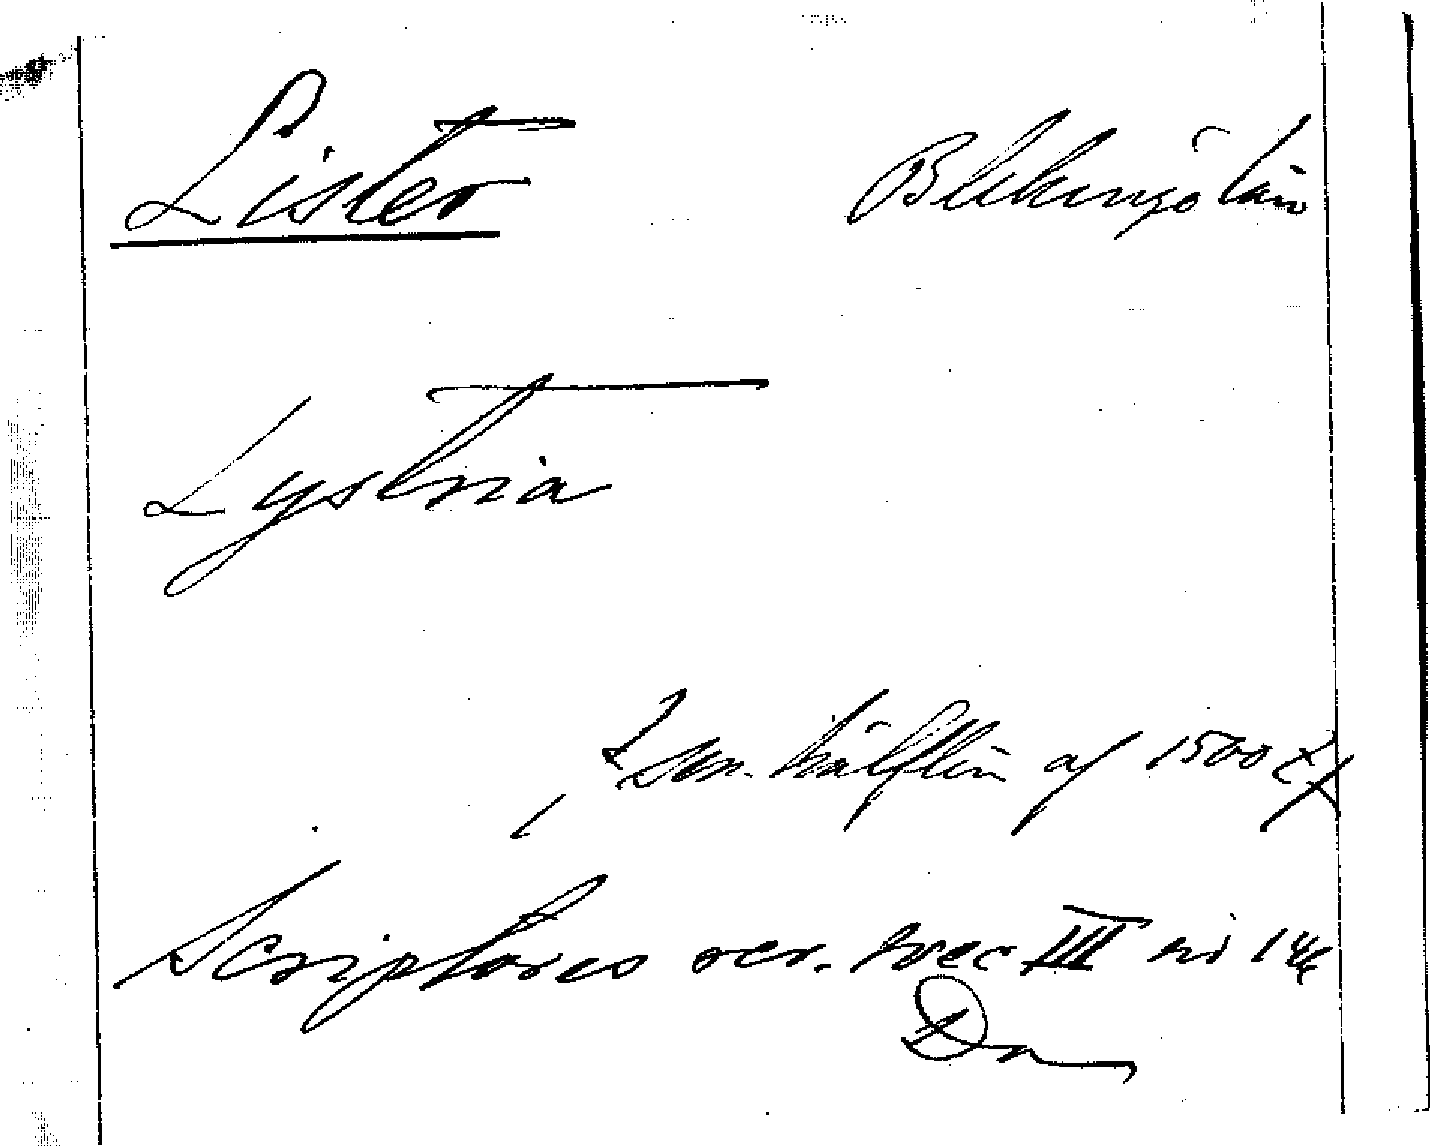 Lister Blekinge län
Lystria
Sen. hälften af 1500 t
Scriptores rer. svec III